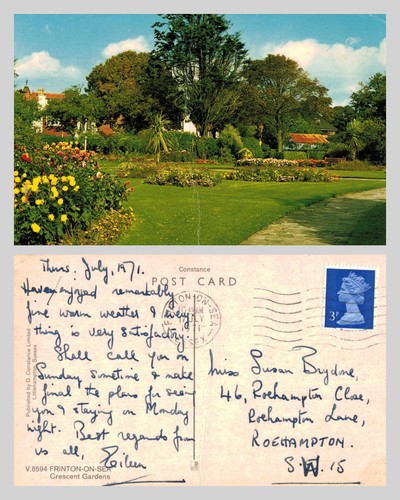 Constance
POST CARD
Thurs. July, 1971.
Have enjoyed remarkably
fine warm weather & every
thing is very satisfactory.
Shall call you on
Sunday sometime & make
final the plans for seeing
you & staying on Monday
night. Best regards from
us all, Eileen
V.8594 FRINTON-ON-SEA
Crescent Gardens
Published by D. Constance Limited
Littlehampton, Sussex
FRINTON-ON-SEA
ESSEX
3P
Miss Susan Brydone,
46, Roehampton Close,
Roehampton Lane,
ROEHAMPTON.
S.W. 15